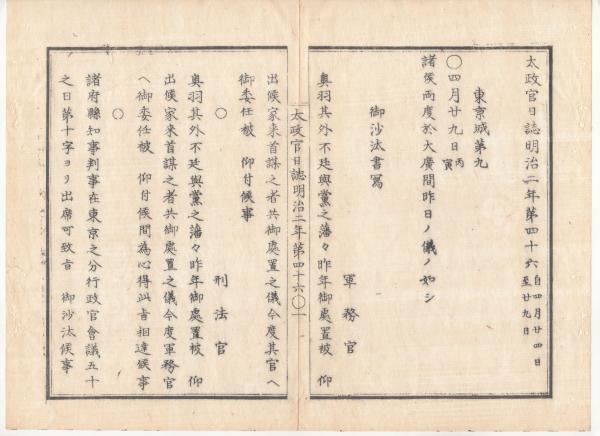 太政官日誌明治二年第四十六 自四月廿四日 至廿九日
東京城第九
○四月廿九日 丙寅
諸侯両度於大廣間昨日ノ儀ノ如シ
御沙汰書寫
軍務官
奥羽其外不廷與黨之藩々昨年御處置被 仰
太政官日誌明治二年第四十六 ○一
出候家来首謀之者共御處置之儀今度其官へ
御委任被 仰付候事
○
刑法官
奥羽其外不廷與黨之藩々昨年御處置被 仰
出候家来首謀之者共御處置之儀今度軍務官
へ御委任被 仰付候間為心得此旨相達候事
○
諸府縣知事判事在東京之分行政官會議五十
之日第十字ヨリ出席可致旨 御沙汰候事